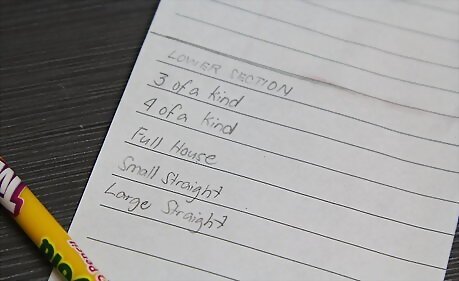 LOWER SECTION
3 of a kind
4 of a kind
Full House
Small Straight
Large Straight